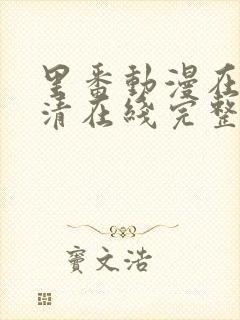 里番動漫在
清在綫完整
竇文浩